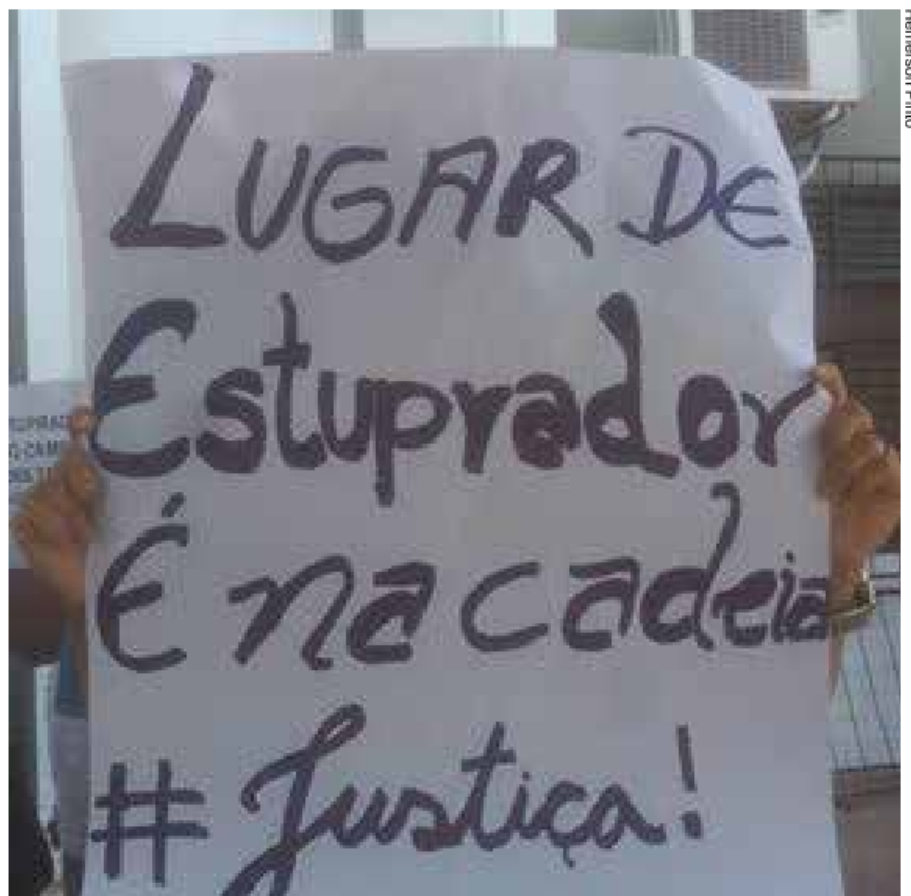 LUGAR DE
Estuprador
É na cadeia
# Justiça!
Hemerson Pinto